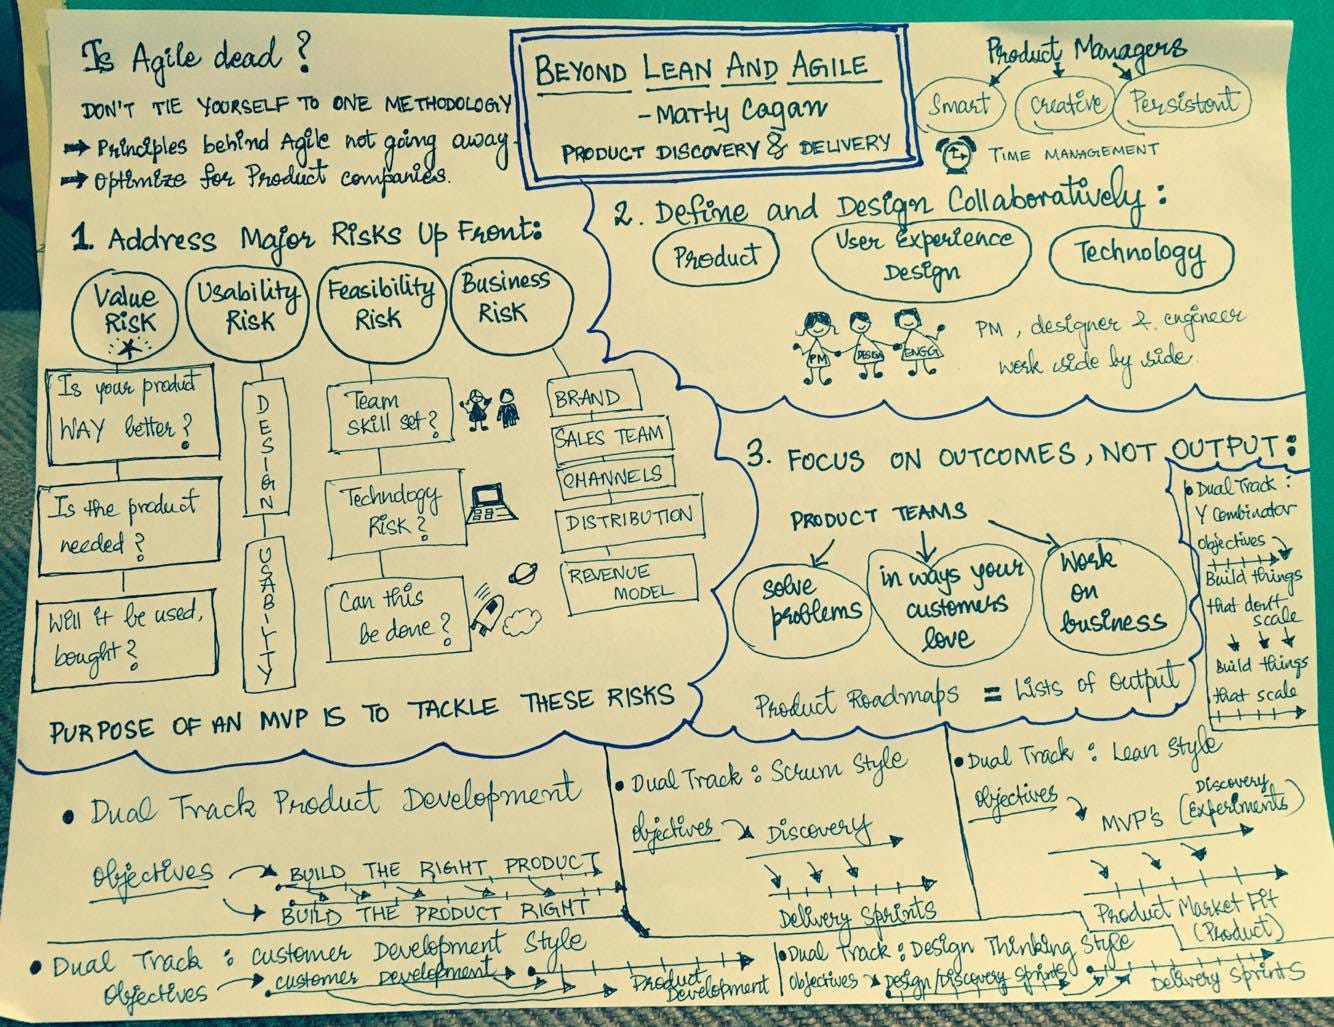 Is Agile dead?
DON'T TIE YOURSELF TO ONE METHODOLOGY
➡ Principles behind Agile not going away.
➡ Optimize for Product companies.
BEYOND LEAN AND AGILE
- Marty Cagan
PRODUCT DISCOVERY & DELIVERY
Product Managers
Smart
Creative
Persistent
TIME MANAGEMENT
1. Address Major Risks Up Front:
Value
Risk
Usability
Risk
Feasibility
Risk
Business
Risk
Is your product
WAY better?
Is the product
needed?
Will it be used,
bought?
DESIGN
USABILITY
Team
skill set?
Technology
Risk?
Can this
be done?
BRAND
SALES TEAM
CHANNELS
DISTRIBUTION
REVENUE
MODEL
PURPOSE OF AN MVP IS TO TACKLE THESE RISKS
2. Define and Design Collaboratively:
Product
User Experience
Design
Technology
PM
DESIGN
ENGG
PM, designer & engineer
work side by side.
3. FOCUS ON OUTCOMES, NOT OUTPUT:
PRODUCT TEAMS
solve
problems
in ways your
customers
love
Work
on
business
Product Roadmaps = Lists of Output
• Dual Track:
Y Combinator
Objectives
Build things
that don't
scale
Build things
that scale
• Dual Track Product Development
Objectives
BUILD THE RIGHT PRODUCT
BUILD THE PRODUCT RIGHT
• Dual Track: Scrum Style
Objectives
Discovery
Delivery Sprints
• Dual Track: Lean Style
Objectives
Discovery
MVP's (Experiments)
Product Market Fit
(Product)
• Dual Track: Customer Development Style
Objectives
customer Development
Product
Development
• Dual Track: Design Thinking Style
Objectives
Design/Discovery Sprints
Delivery Sprints